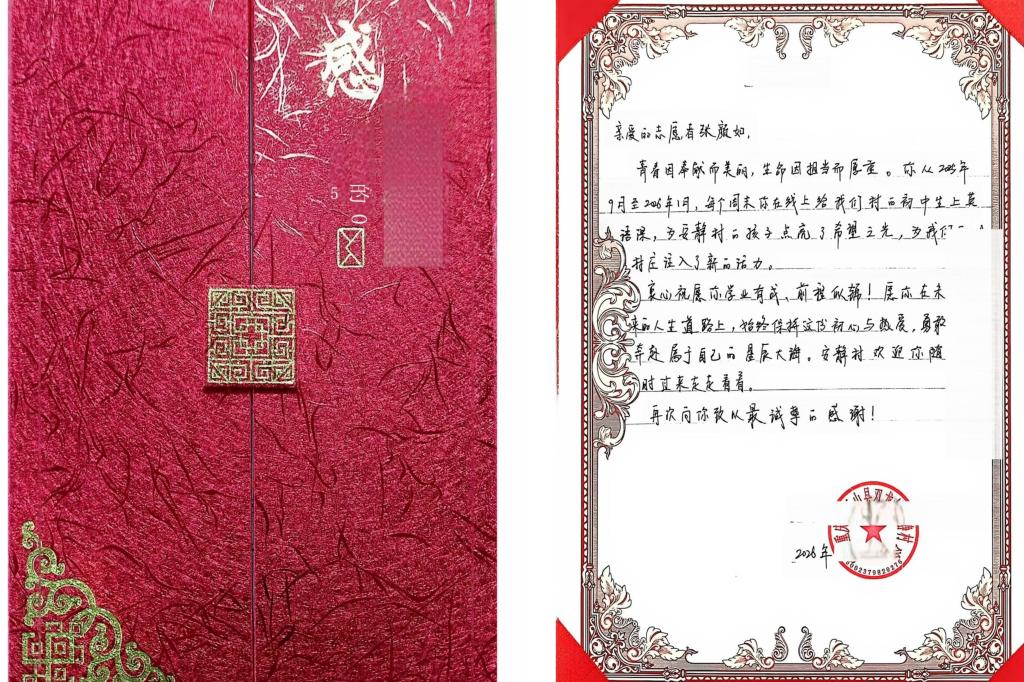 感
的
5
亲爱的志愿者张靓如,
青春因奉献而美丽,生命因担当而厚重。你从2025年
9月至2026年1月,每个周末你在线上给我们村的初中生上英
语课,为安静村的孩子点亮了希望之光,为我们
村庄注入了新的活力。
衷心祝愿你学业有成、前程似锦!愿你在未
来的人生道路上,始终保持这份初心与热爱,勇敢
奔赴属于自己的星辰大海。安静村欢迎你随
时过来走走看看。
再次向你致以最诚挚的感谢!
2026年